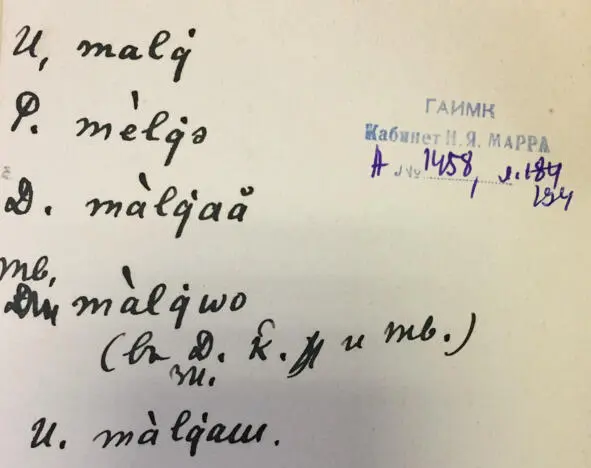 И, malq̇
Р. mèlq̇ə
Д. màlq̇aå
тв,
màlq̇wo
(въ Д. к̂. и тв.)
зн.
И. màlq̇aш.
ГАИМК
Кабинет Н. Я. МАРРА
А № 1458, л. 184
194